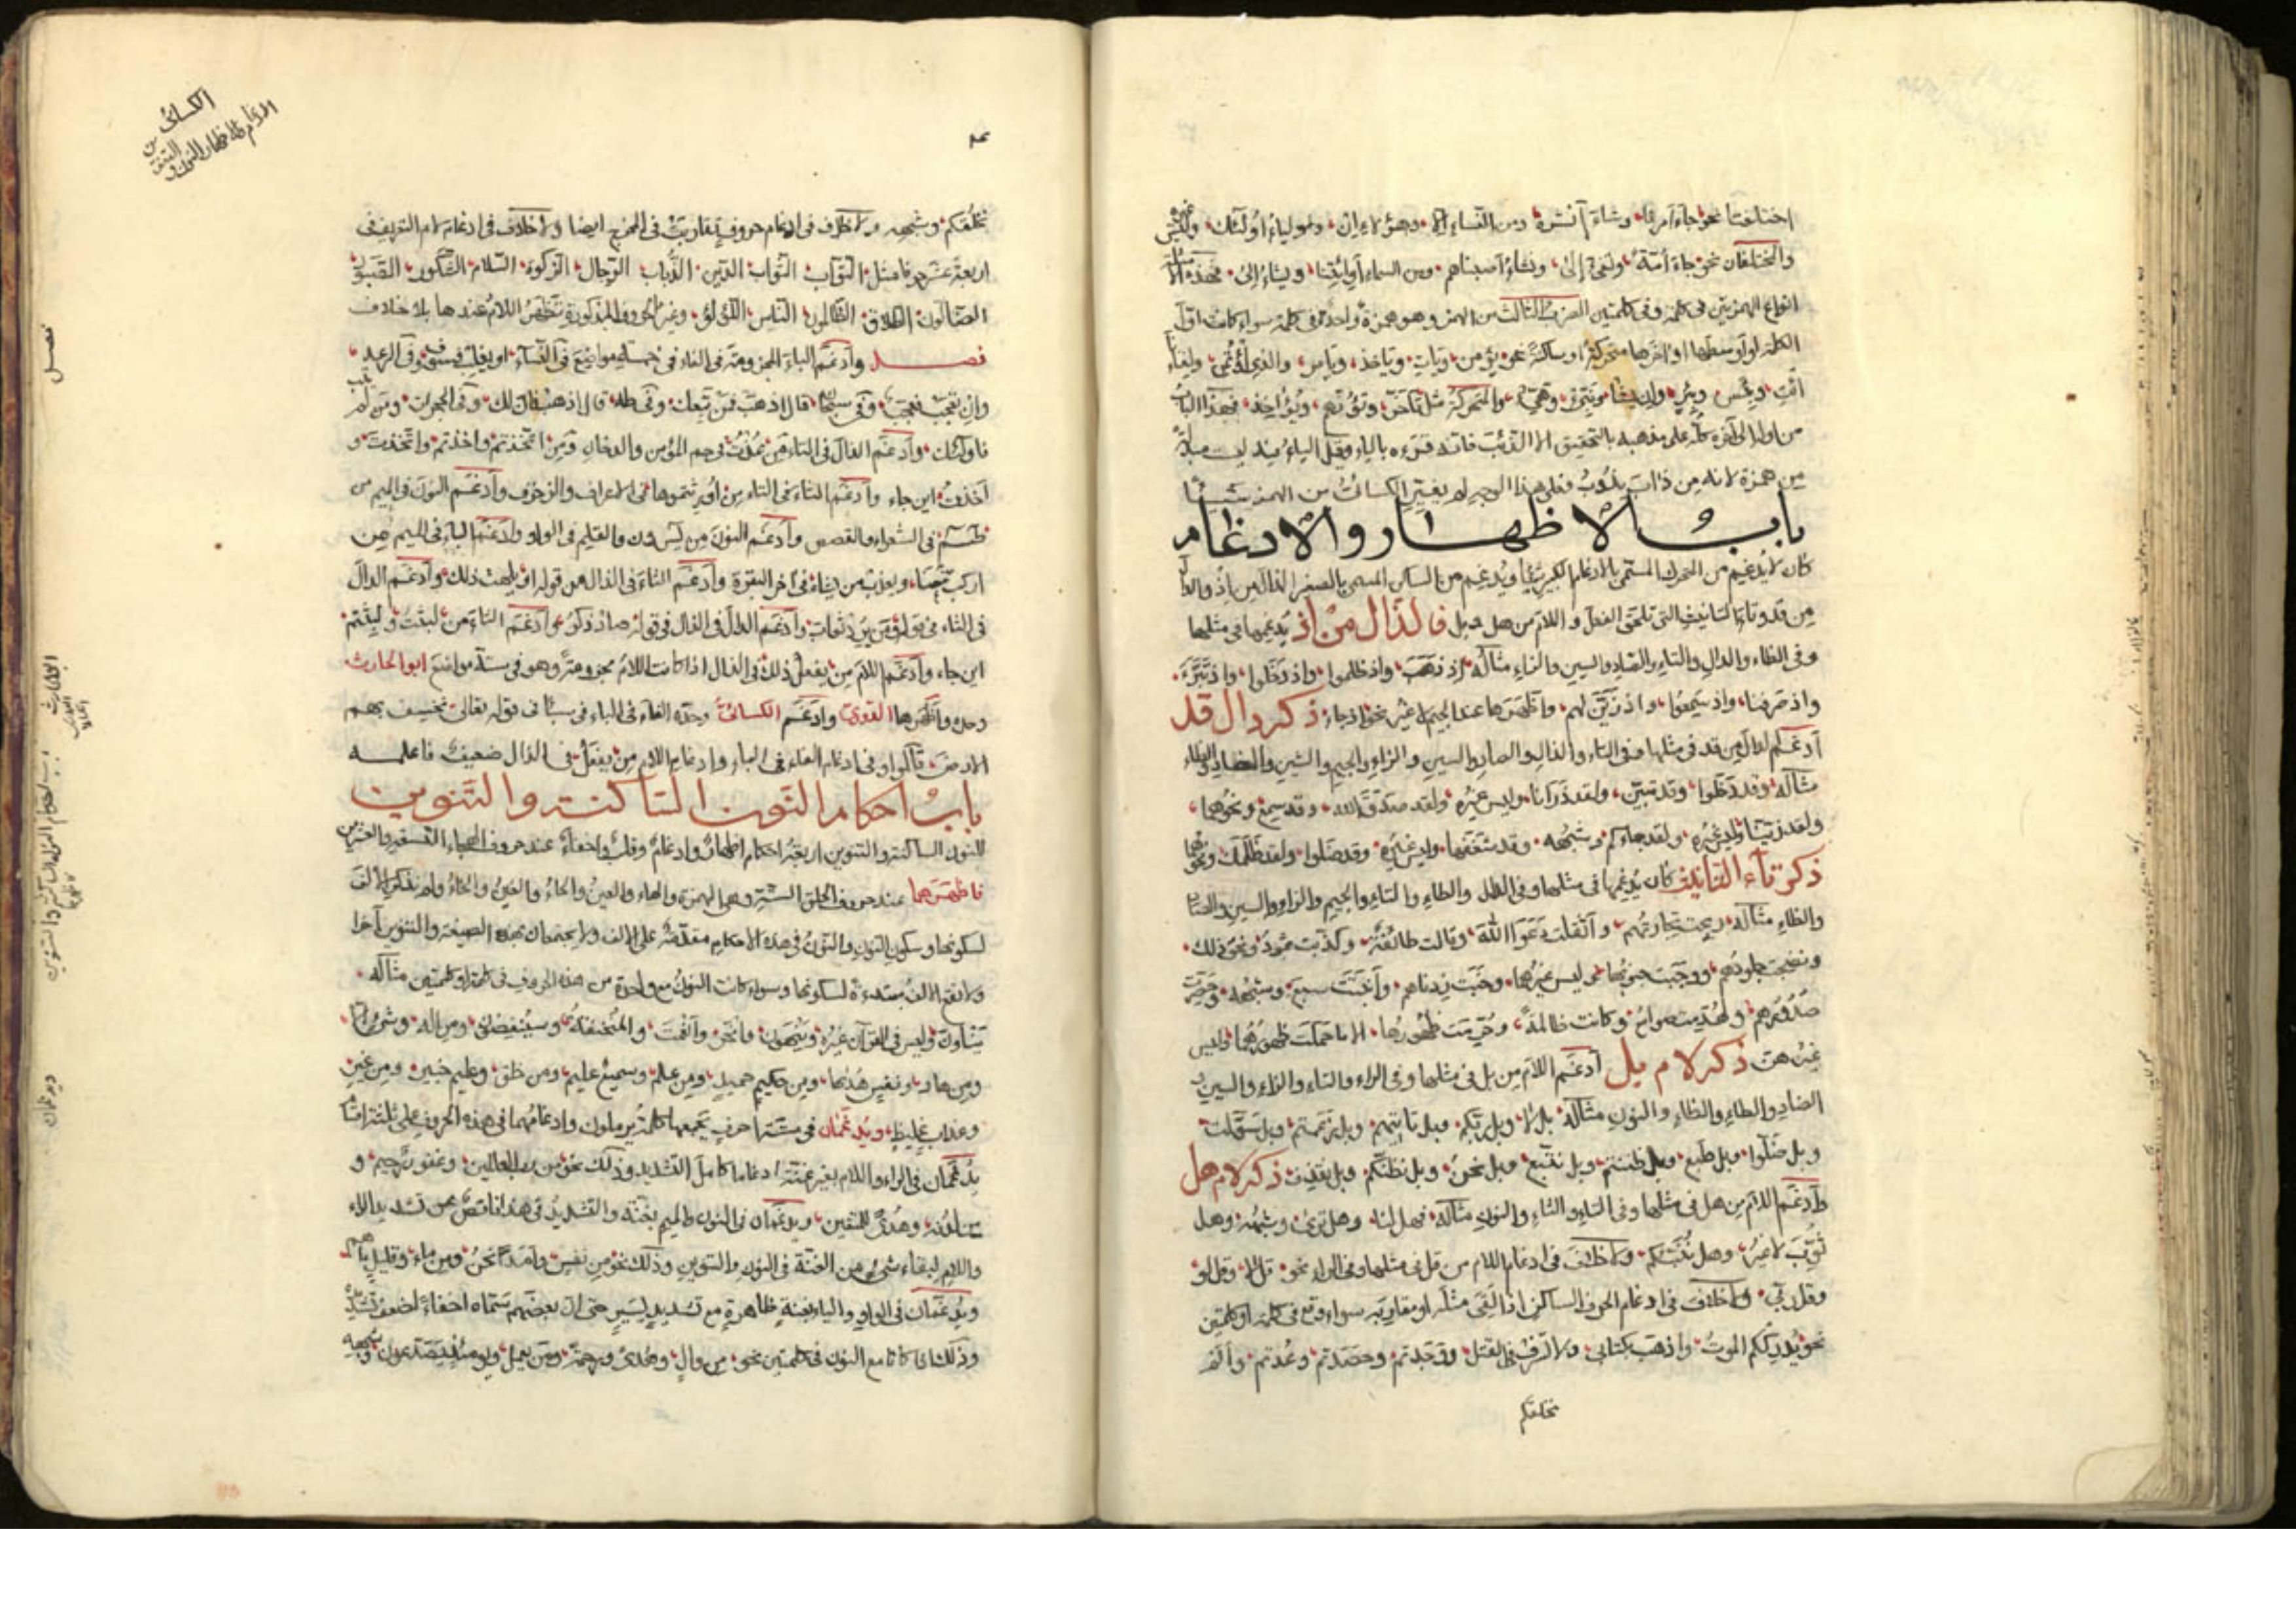 اختلفتا نحو جاء امرنا وشاء أنشره ومن النساء إلا وهؤلاء إن وأولياء أولئك
والمختلفتان نحو جاء أمة ونشاء أصبناهم ومن السماء أو ائتنا ويشاء إلى فهذه
انواع الهمزتين فى كلمة وفى كلمتين الضرب الثالث من الهمز وهو همزة واحدة فى كلمة سواء كانت اول
الكلمة او اوسطها او اخرها متحركة او ساكنة نحو يؤمن ويأت وياخذ وياس والذي اؤتمن ولقاءنا
ائت وبئس وبئر وان يشأ والمتحركة مثل تأخر ويؤاخذ فهذا الباب
من اوله الى آخره كله على مذهبه بالتحقيق الا الذئب فانه قرءه بالياء وقيل الياء فيه ليست مبدلة
من همزة لانه من ذاب يذوب فعلى هذا الوجه لم يغير الكسائى من الهمز شيئا
باب الاظهار والادغام
كان لا يدغم من المتحرك المسمى بالادغام الكبير شيئا ويدغم من الساكن المسمى بالصغير الذال من اذ والدال
من قد وتاء التانيث التى تلحق الفعل و اللام من هل وبل فالذال من اذ يدغمها فى مثلها
وفى الظاء والدال والتاء والصاد والسين والزاء مثاله اذ ذهب واذ ظلموا واذ دخلوا واذ تبرأ
واذ صرفنا واذ سمعوا واذ زين لهم واظهرها عند الجيم لا غير نحو اذ جاء ذكر دال قد
أدغم الدال من قد فى مثلها وفى التاء والذال والصاد والسين والزاء والجيم والشين والضاد والظاء
مثاله وقد دخلوا وقد تبين ولقد ذرأنا وليس غيره ولقد صدق الله وقد سمع ونحوهما
ولقد زينا وليس غيره ولقد جاءكم وشبهه وقد شغفها وليس غيره وقد ضلوا ولقد ظلمك ونحوهما
ذكر تاء التانيث كان يدغمها فى مثلها وفى الدال والطاء والثاء والجيم والزاء والسين والصاد
والظاء مثاله ربحت تجارتهم و أثقلت دعوا الله وقالت طائفة وكذبت ثمود ونحو ذلك
ونضجت جلودهم ووجبت جنوبها وليس غيرهما وخبت زدناهم وأنبتت سبع وشبهه وحصرت
صدورهم ولهدمت صوامع وكانت ظالمة وحرمت ظهورها الا ما حملت ظهورهما وليس
غيرهن ذكر لام بل أدغم اللام من بل فى مثلها وفى الراء والتاء والزاء والسين و
الضاد والطاء والظاء والنون مثاله بل لا وبل ربكم وبل تاتيهم وبل زعمتم وبل سولت
وبل ضلوا وبل طبع وبل ظننتم وبل نتبع وبل نحن وبل نظنكم وبل نقذف ذكر لام هل
وأدغم اللام من هل فى مثلها وفى التاء والثاء والنون مثاله فهل لنا وهل ترى وشبهه وهل
ثوب لا غير وهل ننبئكم ولا خلاف فى ادغام اللام من قل فى مثلها وفى الراء نحو قل لا وقل لو
وقل ربي ولا خلاف فى ادغام الحرف الساكن اذا لقى مثله او مقاربه سواء وقع فى كلمة او كلمتين
نحو يدرككم الموت واذهب بكتابي ولا تسرف فى القتل ووجدتم وحصدتم وعدتم وألم
نخلقكم
الكسائى
الادغام الاظهار النون والتنوين
نخلقكم وشبهه ولا خلاف فى ادغام حروف تقاربت فى المخرج ايضا ولا خلاف فى ادغام لام التعريف فى
اربعة عشر حرفا مثل التواب الثواب الدين الذباب الرجال الزكوة السلام الشكور الصبور
الضالون الطلاق الظالمون الناس اللؤلؤ وغير الحروف المذكورة تظهر اللام عندها بلا خلاف
فصل وأدغم الباء المجزومة فى الفاء فى خمسة مواضع فى النساء او يغلب فسوف وفى الرعد
وان تعجب فعجب وفى سبحان قال اذهب فمن تبعك وفى طه قال اذهب فان لك وفى الحجرات ومن لم يتب
فاولئك وأدغم الذال فى التاء من عذت فى حم المؤمن والدخان ومن اتخذتم واخذتم واتخذت و
أخذت اين جاء وأدغم الثاء فى التاء من اورثتموها فى الاعراف والزخرف وأدغم النون فى الميم من
طسم فى الشعراء والقصص وأدغم النون من يس ون والقلم فى الواو وأدغم الباء فى الميم من
اركب معنا ويعذب من يشاء فى آخر البقرة وأدغم الثاء فى الذال من قوله يلهث ذلك وأدغم الدال
فى الثاء فى قوله ومن يرد ثواب وأدغم الدال فى الذال فى قوله صاد ذكر وأدغم الثاء من لبثت ولبثتم
اين جاء وأدغم اللام من يفعل ذلك فى الذال اذا كانت اللام مجزومة وهو فى ستة مواضع ابو الحارث
وحده وأظهرها الدورى وأدغم الكسائى وحده الفاء فى الباء فى سبأ فى قوله تعالى نخسف بهم
الارض قالوا وفى ادغام الفاء فى الباء وادغام اللام من يفعل فى الذال ضعيف فاعلمه
باب احكام النون الساكنة والتنوين
للنون الساكنة والتنوين اربعة احكام اظهار وادغام وقلب واخفاء عند حروف الهجاء التسعة والعشرين
فاظهرهما عند حروف الحلق الستة وهى الهمزة والهاء والعين والحاء والغين والخاء ولم نذكر الألف
لسكونها وسكون النون والنون فى هذه الاحكام مقدمة على الالف ولا يجتمعان بهذه الصيغة والتنوين آخرا
ولا تقع الالف مبتدءة لسكونها وسواء كانت النون مع واحدة من هذه الحروف فى كلمة او كلمتين مثاله
ينأون وليس فى القرآن غيره وينهون وانحر وأنعمت والمنخنقة وسينغضون ومن اله
ومن هاد ومن حكيم حميد ومن علم وسميع عليم ومن خلق وعليم خبير ومن غير
وعذاب غليظ ويدغمان فى ستة احرف يجمعها كلمة يرملون وادغامهما فى هذه الحروف على ثلثة اقسام
يدغمان فى الراء واللام بغير غنة ادغاما كامل التشديد وذلك نحو من رب العالمين وغفور رحيم و
من لدنه وهدى للمتقين ويدغمان فى النون والميم بغنة والتشديد فى هذا ناقص عن تشديد الراء
واللام لبقاء شيء من الغنة فى النون والتنوين وذلك نحو من نفس ومن ماء
ويدغمان فى الواو والياء بغنة ظاهرة مع تشديد يسير حتى ان بعضهم سماه اخفاء لضعف تشديده
وذلك اذا كانا مع النون فى كلمتين نحو من وال وهدى ورحمة ومن يعمل ويومئذ يصدعون وشبهه
فصل
ابو الحارث
باب احكام النون الساكنة والتنوين
ويدغمان